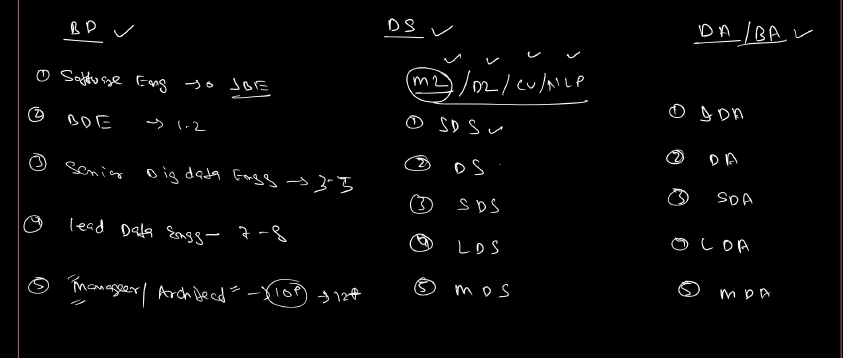 BD ✓
① Software Eng → 0 JBE
② BDE → 1-2
③ Senior Big data Engg → 3-5
④ lead Data Engg - 7-8
⑤ "Manageer / Architecd" → 10+ → 12+
DS ✓
ML / DL / CV / NLP
① JDS ✓
② DS
③ SDS
④ LDS
⑤ MDS
DA / BA ✓
① JDA
② DA
③ SDA
④ LDA
⑤ MDA